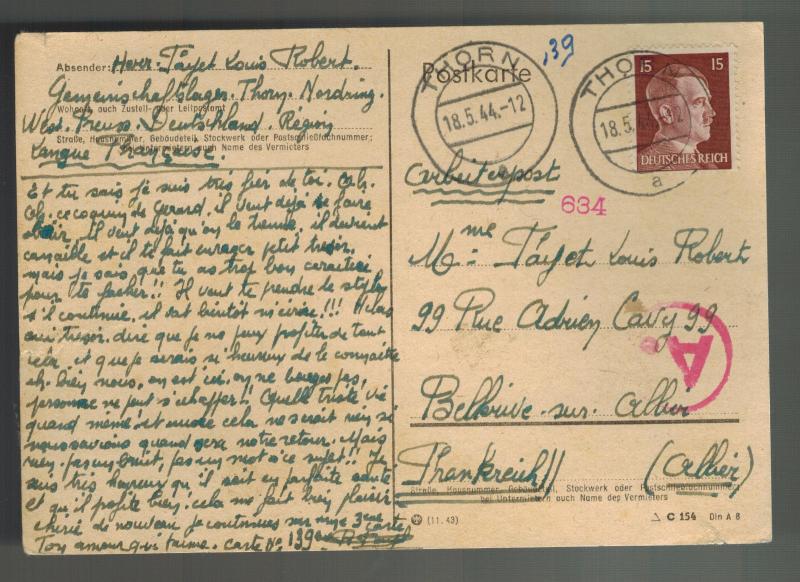 Absender: Herr. Tayet Louis Robert.
Gemeinschaftslager. Thorn. Nordring.
Wohnort, auch Zustell- oder Leitpostamt
West. Preuss. Deutschland. Région
Straße, Hausnummer, Gebäudeteil, Stockwerk oder Postschließfachnummer;
bei Untermietern auch Name des Vermieters
Langue Française.
Et tu sais je suis très fier de toi.
ce coquin de Gerard. il veut déjà se faire
il veut déjà qu'on le tienne, il devient
canaille et il te fait enrager petit trésor.
mais je sais que tu as trop bon caractère
pour te facher!! Il vaut te prendre le stylo
s'il continue, il sait bientôt m'écrire!!! Hélas
oui trésor. dire que je ne peux profiter de tout
cela, et que je serais si heureux de le connaître
eh bien nous, on est ici. on ne bouge pas,
personne ne peut s'échapper! Quelle triste vie
quand même et encore cela ne serait rien si
nous savions quand sera notre retour. Mais
rien. pas un bruit, pas un mot à ce sujet!! Je
suis très heureux qu'il soit en parfaite santé
et qu'il profite bien, cela me fait bien plaisir
chérie de nouveau je continue sur une 3eme carte
Ton amour qui t'aime. carte No 139
Postkarte
139
THORN
18.5.44.-12
THORN
18.5.44.-12
a
15 15
DEUTSCHES REICH
Arbeiterpost
634
Mme Tayet Louis Robert
99 Rue Adrien Cavy 99
A
Bellerive-sur-Allier
Frankreich!! (Allier)
Straße, Hausnummer, Gebäudeteil, Stockwerk oder Postschließfachnummer;
bei Untermietern auch Name des Vermieters
(11.43)
C 154 Din A 6